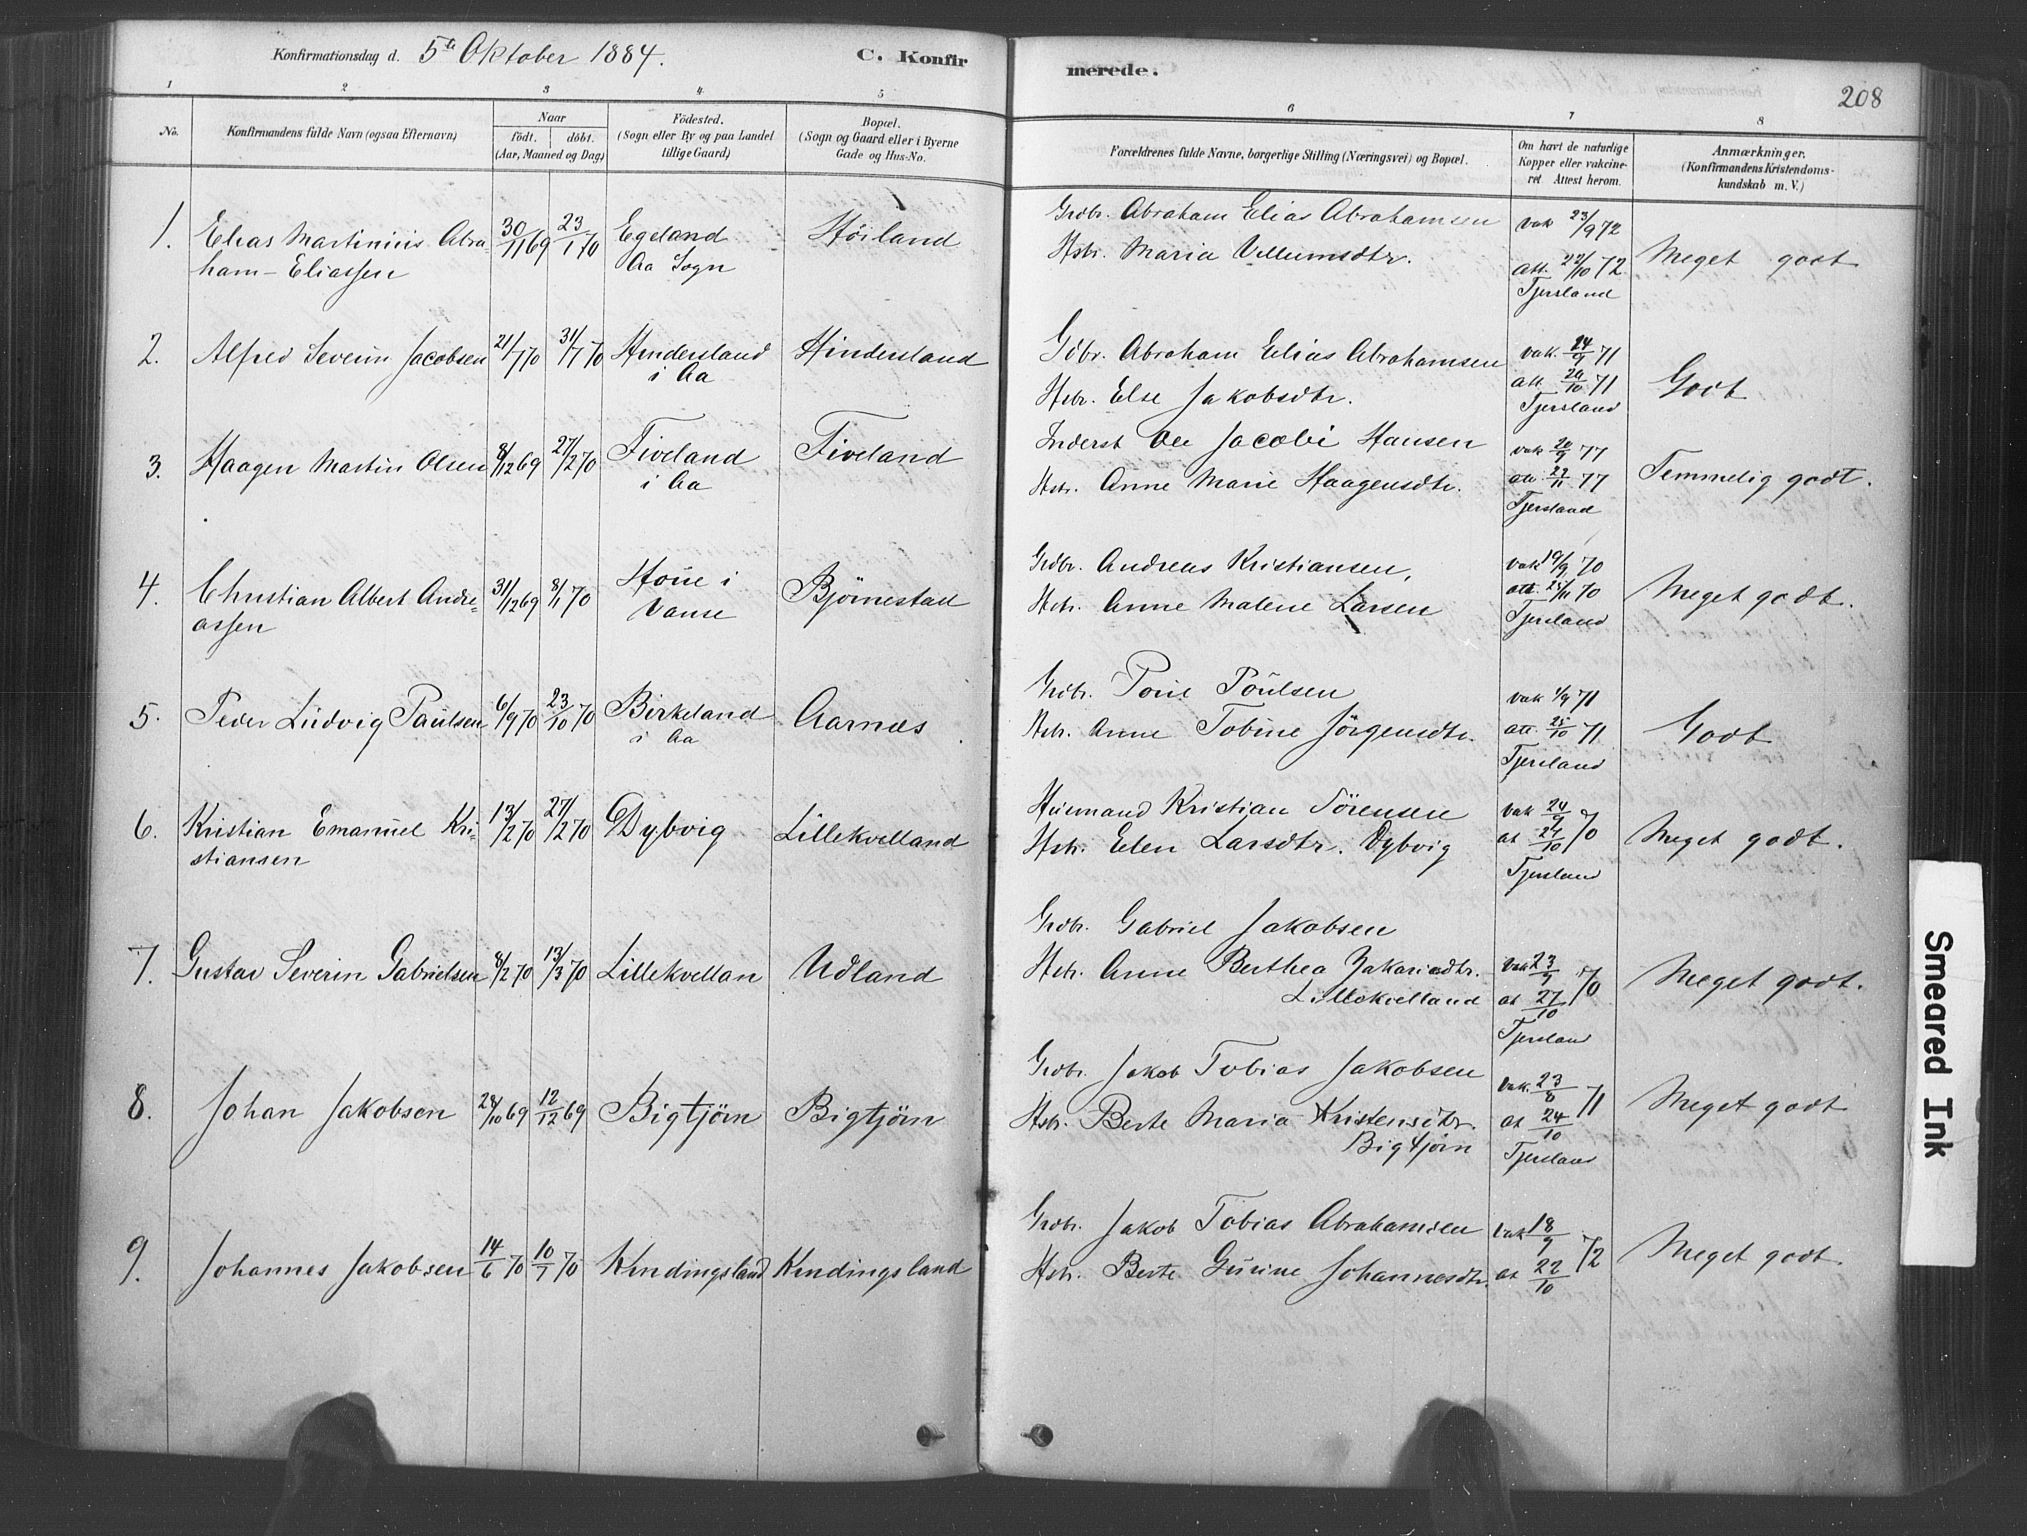 Konfirmationsdag d. 5te Oktober 1884.
C. Konfir
merede.
208
1 2 3 4 5 6 7 8
No.
Konfirmandens fulde Navn (ogsaa Efternavn)
Naar
født. døbt.
(Aar, Maaned og Dag)
Födested.
(Sogn eller By og paa Landet
tillige Gaard)
Bopæl.
(Sogn og Gaard eller i Byerne
Gade og Hus-No.
Forældrenes fulde Navne, borgerlige Stilling (Næringsvei) og Bopæl.
Om havt de naturlige
Kopper eller vakcine-
ret Attest herom.
Anmærkninger.
(Konfirmandens Kristendoms-
kundskab m. V.)
1. Elias Martinius Abra- 30/11 69 23/1 70 Egeland Höiland
ham-Eliassen Aa Sogn
Grdbr. Abraham Elias Abrahamsen vak 23/9 72
Hstr. Maria Villumsdtr. att. 22/10 72 Meget godt
Tjersland
2. Alfred Severin Jacobsen 21/7 70 31/7 70 Hindersland Hindersland
i Aa
Gdbr. Abraham Elias Abrahamsen vak. 24/9 71
Hstr. Else Jakobsdtr. att. 20/10 71 Godt
Tjersland
3. Haagen Martin Olsen 8/12 69 27/2 70 Fiveland Fiveland
i Aa
Inderst Ole Jacobi Hansen vak 20/9 77
Hstr. Anne Marie Haagensdtr. att. 22/11 77 Temmelig godt.
Tjersland
4. Christian Albert Andre- 31/12 69 8/1 70 Houe i Björnestad
assen Vanse
Grdbr. Andreas Kristiansen, vak 19/9 70
Hstr. Anne Malene Larsen att. 25/11 70 Meget godt.
Tjersland
5. Peder Ludvig Paulsen 6/9 70 23/10 70 Birkeland Aarnæs
i Aa
Grdbr. Poul Poulsen vak 1/9 71
Hstr. Anne Tobine Jörgensdtr. att. 25/10 71 Godt
Tjersland
6. Kristian Emanuel Kri- 13/2 70 27/2 70 Dybvig Lillekvelland
stiansen
Husmand Kristian Sörensen vak 24/9
Hstr. Elen Larsdtr. Dybvig at 27/10 70 Meget godt.
Tjersland
7. Gustav Severin Gabrielsen 8/2 70 13/3 70 Lillekvellan Udland
Grdbr. Gabriel Jakobsen
Hstr. Anne Berthea Zakariasdtr. vak 23/9
Lillekvelland at 27/10 70 Meget godt.
Tjersland
8. Johan Jakobsen 28/10 69 12/12 69 Bigtjörn Bigtjörn
Grdbr. Jakob Tobias Jakobsen vak. 23/8
Hstr. Berte Maria Kristensdtr. at 24/10 71 Meget godt
Bigtjörn Tjersland
9. Johannes Jakobsen 14/6 70 10/7 70 Kindingsland Kindingsland
Grdbr. Jakob Tobias Abrahamsen vak 18/9
Hstr. Berte Gurine Johannesdtr. at 22/10 72 Meget godt.
Smeared Ink